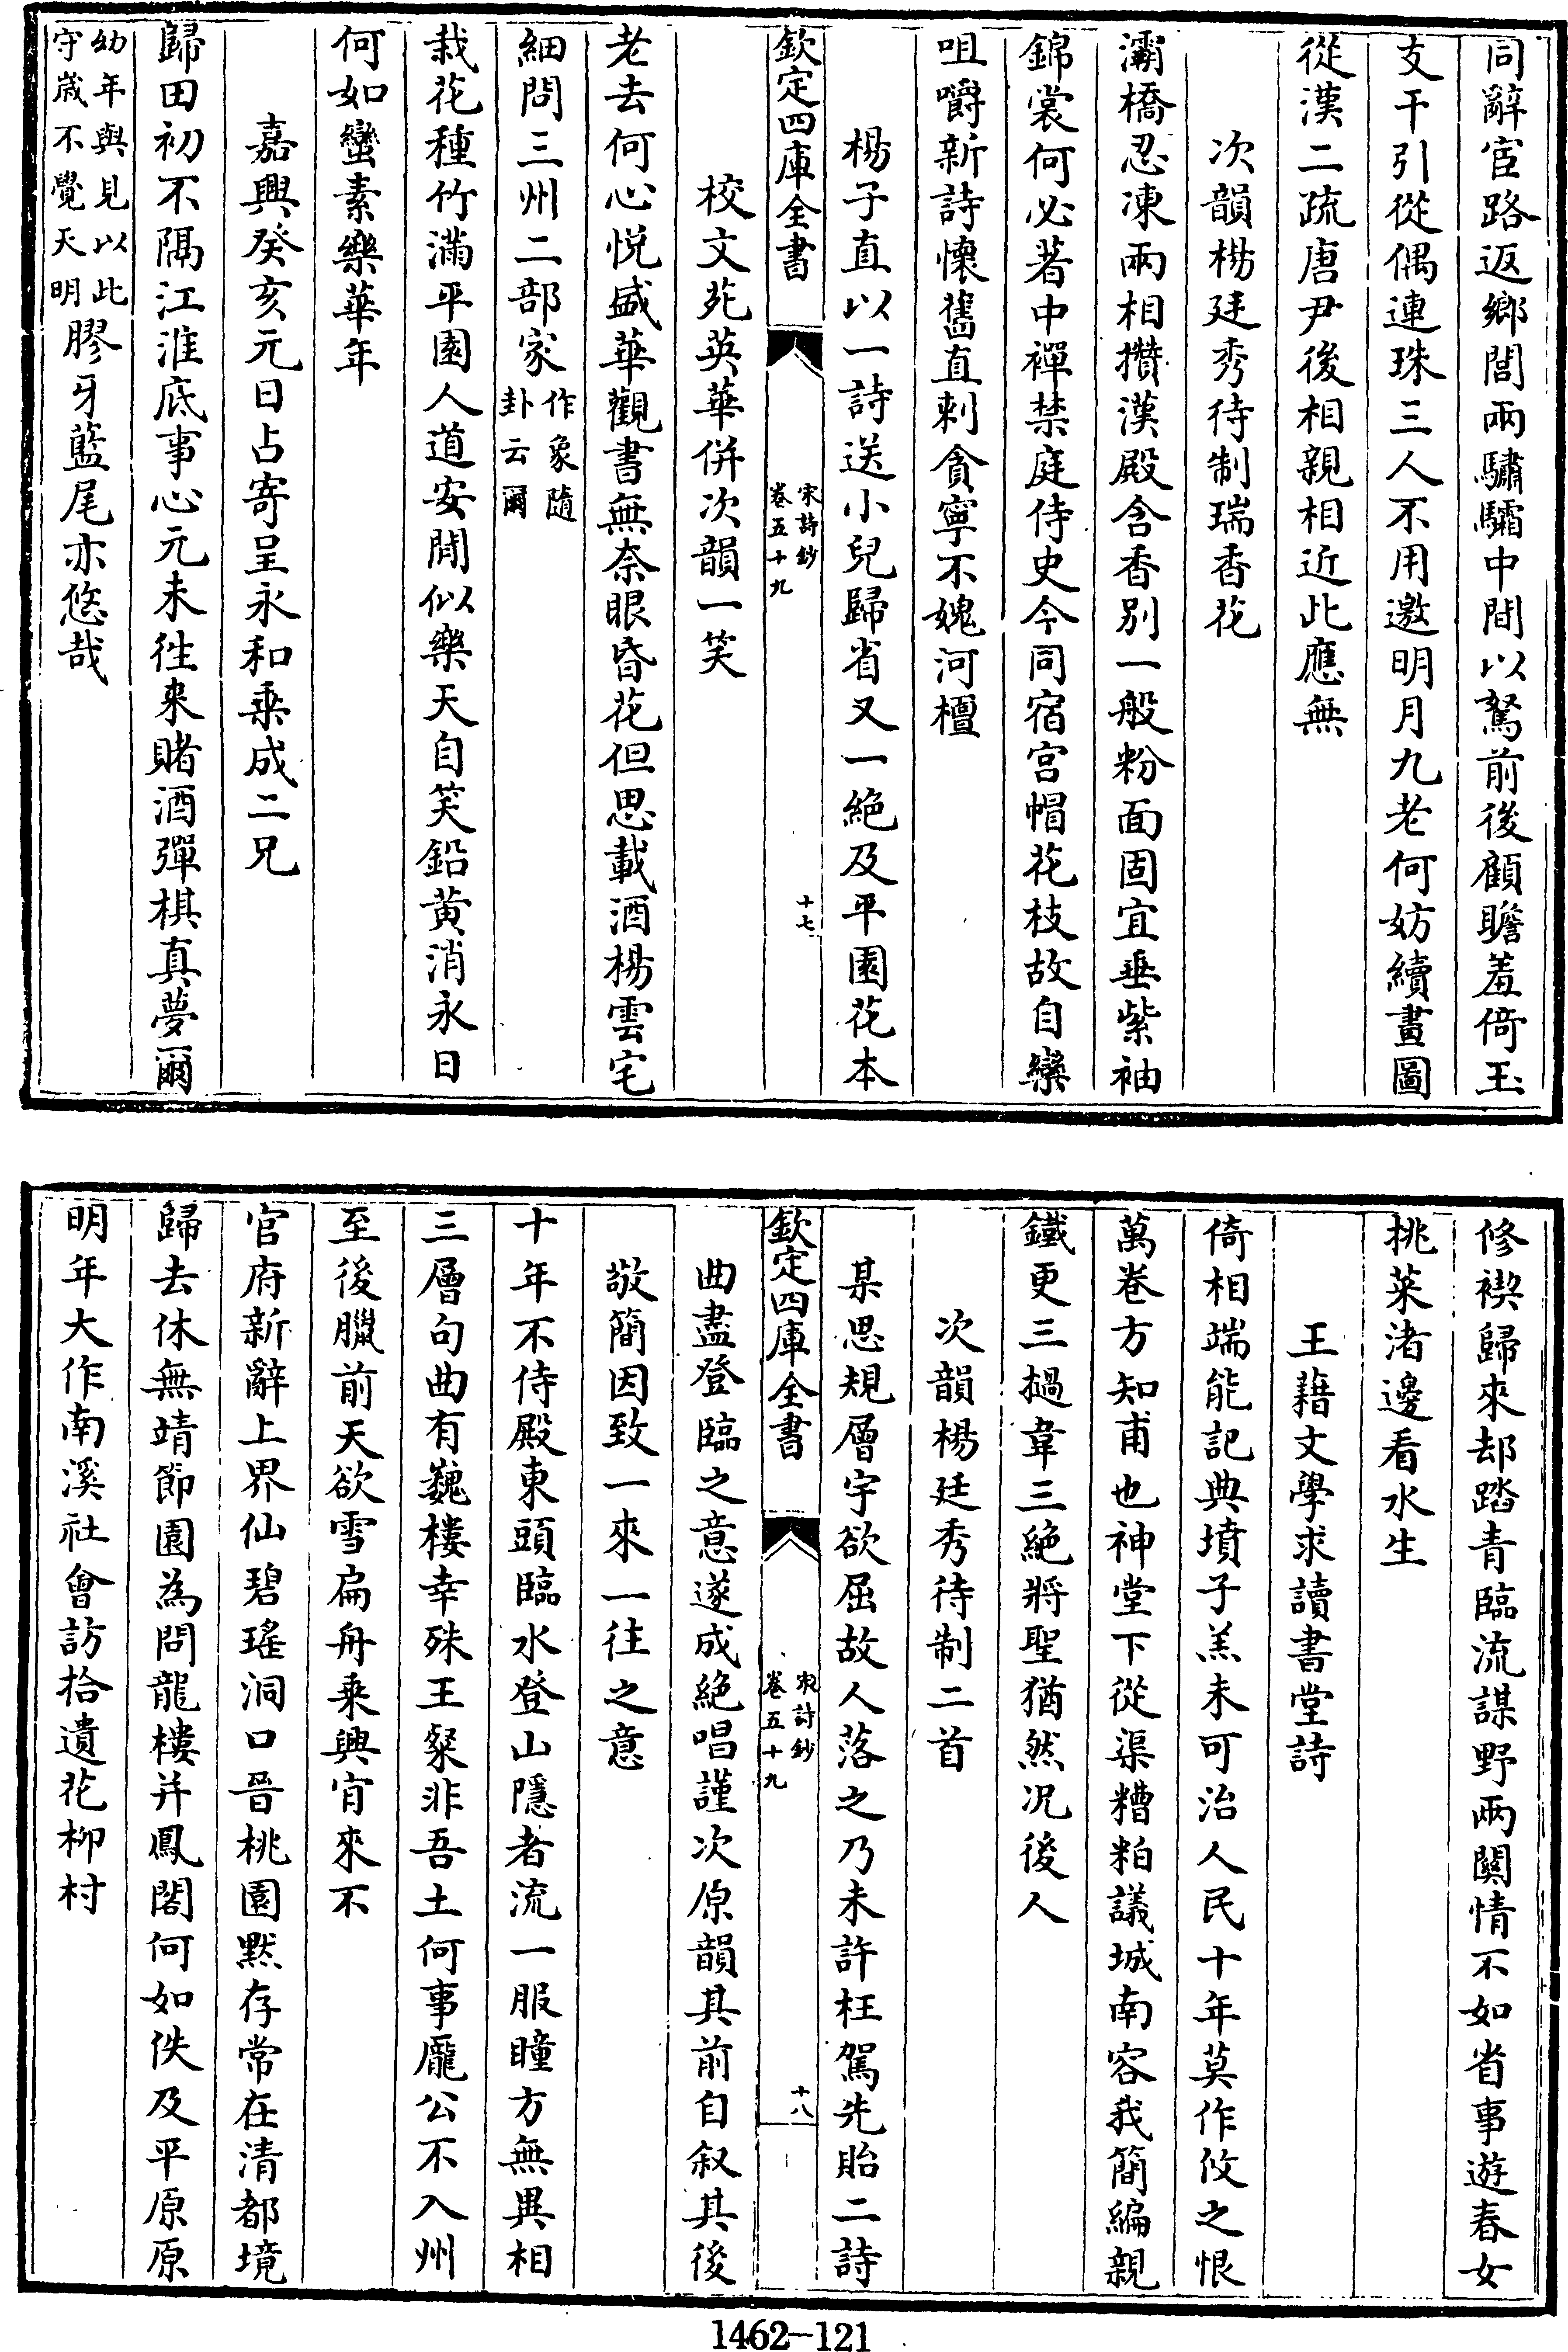 同辭宦路返鄉閭兩驌驦中間以駑前後顧瞻羞倚玉
支干引從偶連珠三人不用邀明月九老何妨續畫圖
從漢二疏唐尹後相親相近此應無
次韻楊廷秀待制瑞香花
灞橋忍凍兩相攢漢殿含香别一般粉面固宜垂紫袖
錦裳何必著中襌禁庭侍史今同宿宫帽花枝故自欒
咀嚼新詩懷舊直刺貪寧不媿河檀
楊子直以一詩送小兒歸省又一絶及平園花本
欽定四庫全書
宋詩鈔
卷五十九
十七
校文苑英華併次韻一笑
老去何心悦盛華觀書無奈眼昏花但思載酒楊雲宅
細問三州二部家
作象隨
卦云爾
栽花種竹滿平園人道安閒似樂天自笑鉛黄消永日
何如蠻素樂華年
嘉興癸亥元日占寄呈永和乘成二兄
歸田初不隔江淮底事心元未往來賭酒彈棋真夢爾
幼年與見以此
守嵗不覺天明
膠牙藍尾亦悠哉
修禊歸來却踏青臨流謀野兩關情不如省事遊春女
挑菜渚邊看水生
王藉文學求讀書堂詩
倚相端能記典墳子羔未可治人民十年莫作攸之恨
萬卷方知甫也神堂下從渠糟粕議城南容我簡編親
鐵更三撾韋三絶將聖猶然况後人
次韻楊廷秀待制二首
某思規層宇欲屈故人落之乃未許枉駕先貽二詩
欽定四庫全書
宋詩鈔
卷五十九
十八
曲盡登臨之意遂成絶唱謹次原韻其前自叙其後
敬簡因致一來一往之意
十年不侍殿東頭臨水登山隱者流一服瞳方無異相
三層句曲有巍樓幸殊王粲非吾土何事龎公不入州
至後臘前天欲雪扁舟乘興肯來不
官府新辭上界仙碧瑤洞口晉桃園默存常在清都境
歸去休無靖節園為問龍樓并鳳閣何如佚及平原原
明年大作南溪社會訪拾遺花栁村
1462—121